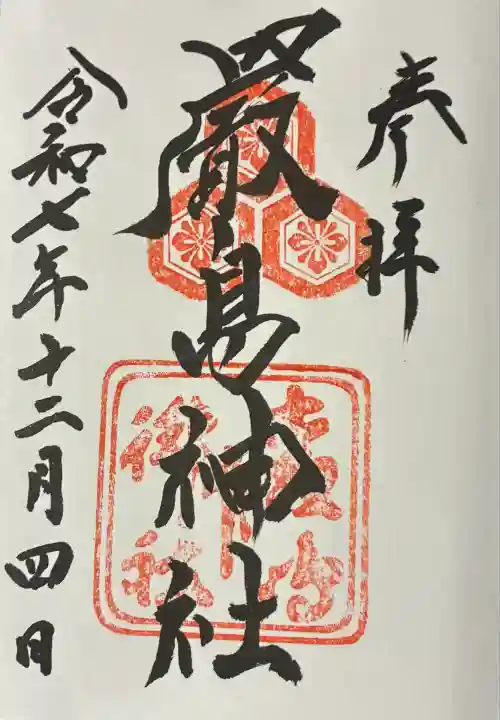 奉拝
厳島神社
令和七年十二月四日